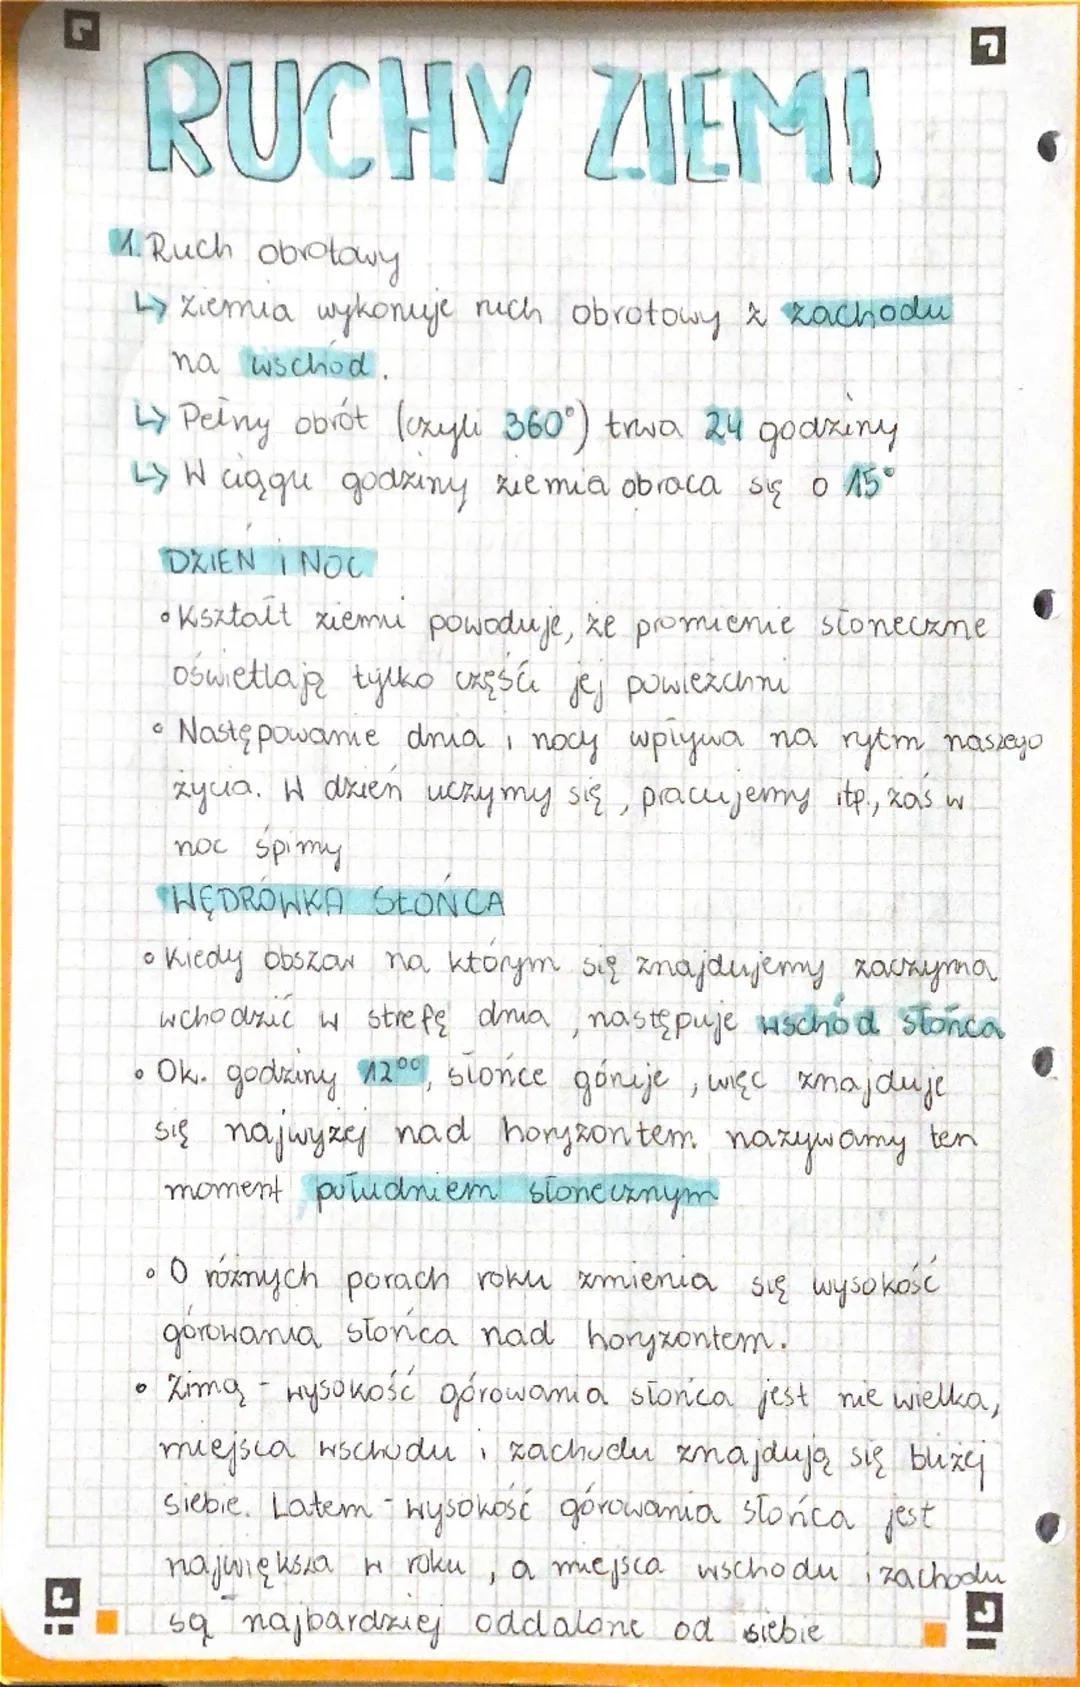 RUCHY ZIEMI
1. Ruch obrotowy
↳ ziemia wykonuje ruch obrotowy z zachodu
na wschód.
↳ Pełny obrót (czyli 360°) trwa 24 godziny
↳ W ciągu godziny ziemia obraca się o 15°
DZIEŃ i NOC
• Kształt ziemi powoduje, że promienie słoneczne
oświetlają tylko część jej powieżchni
• Następowanie dnia i nocy wpływa na rytm naszego
życia. W dzień uczymy się, pracujemy itp., zaś w
noc śpimy
WĘDRÓWKA SŁOŃCA
• Kiedy obszar na którym się znajdujemy zaczyna
wchodzić w strefę dnia, następuje wschód słońca
• Ok. godziny 12⁰⁰, słońce góruje, więc znajduje
się najwyżej nad horyzontem. nazywamy ten
moment południem słonecznym
• O różnych porach roku zmienia się wysokość
górowania słońca nad horyzontem.
• Zimą - wysokość górowania słońca jest nie wielka,
miejsca wschodu i zachodu znajdują się bliżej
siebie. Latem - wysokość górowania słońca jest
największa w roku, a miejsca wschodu i zachodu
są najbardziej oddalone od siebie